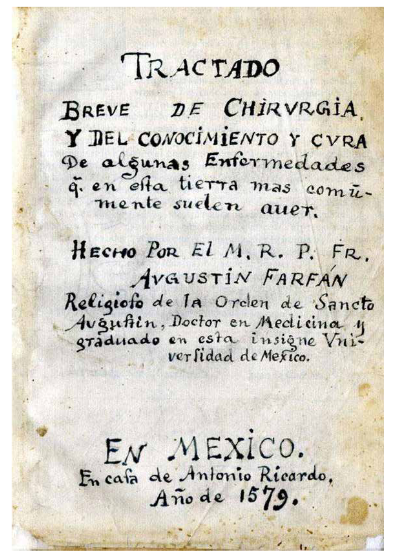 TRACTADO
BREVE DE CHIRVRGIA,
Y DEL CONOCIMIENTO Y CVRA
De algunas Enfermedades
q̃. en eſta tierra mas comũ-
mente suelen auer.
HECHO POR El M. R. P. FR.
AVGUSTIN FARFÁN
Religioſo de la Orden de Sancto
Avguſtin, Doctor en Medicina y
graduado en esta insigne Vni-
verſidad de Mexico.
EN MEXICO.
En caſa de Antonio Ricardo,
Año de 1579.